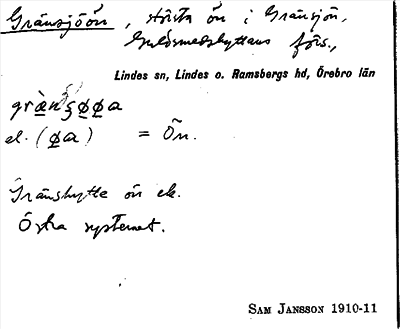 Gränsjöön, största ön i Gränsjön,
Guldsmedshyttans förs.,
Lindes sn, Lindes o. Ramsbergs hd, Örebro län
grὰnʂø̱ø̱a
el. (ø̱a) = Ön.
Gränshytte ön ek.
Östra systemet.
SAM JANSSON 1910-11